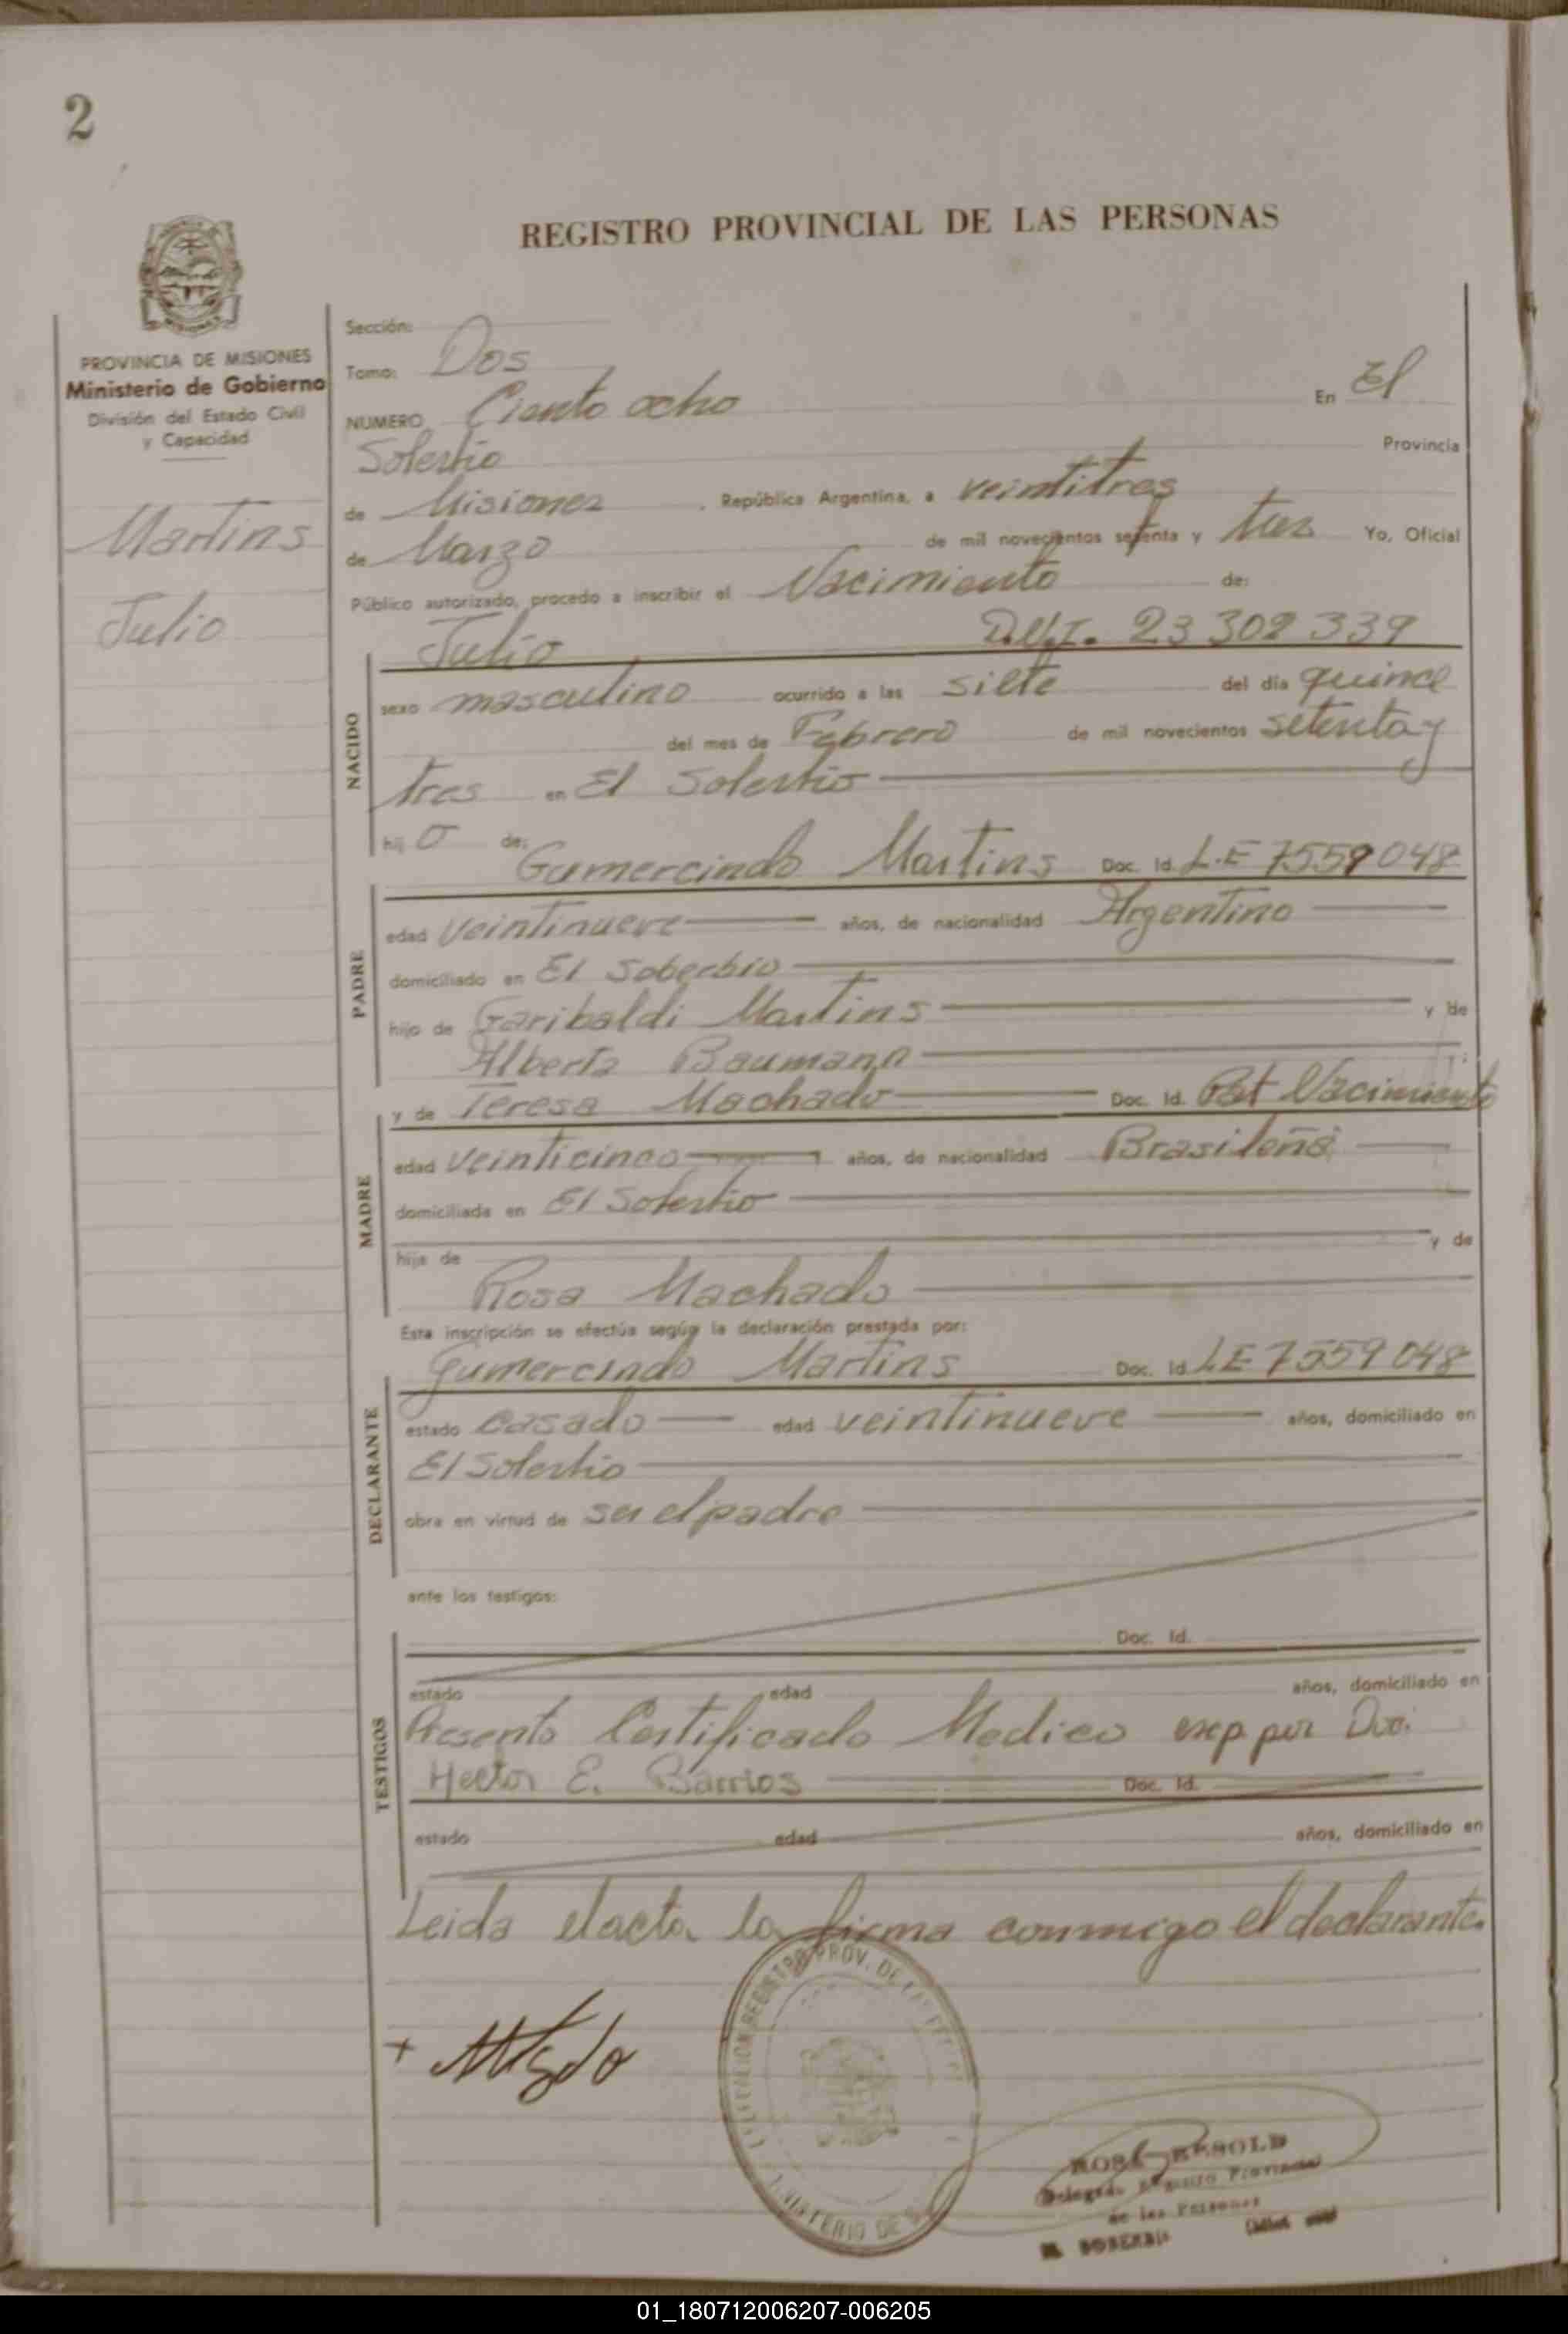 2
REGISTRO PROVINCIAL DE LAS PERSONAS
PROVINCIA DE MISIONES
Ministerio de Gobierno
División del Estado Civil
y Capacidad
Martins
Julio
Sección:
Tomo: Dos
NUMERO Ciento ocho En El
Soberbio Provincia
de Misiones, República Argentina, a veintitres
de Marzo de mil novecientos setenta y tres Yo, Oficial
Público autorizado, procedo a inscribir el Nacimiento de:
Julio D.N.I. 23 302 339
NACIDO
sexo masculino ocurrido a las siete del día quince
del mes de Febrero de mil novecientos setenta y
tres en El Soberbio
hij o de:
Gumercindo Martins Doc. Id. L.E 7559048
PADRE
edad veintinueve años, de nacionalidad Argentino
domiciliado en El Soberbio
hijo de Garibaldi Martins y de
Alberta Baumann
y de Teresa Machado Doc. Id. Part Nacimiento
MADRE
edad veinticinco años, de nacionalidad Brasileña
domiciliada en El Soberbio
hija de y de
Rosa Machado
Esta inscripción se efectúa según la declaración prestada por:
Gumercindo Martins Doc. Id. LE 7559048
DECLARANTE
estado casado edad veintinueve años, domiciliado en
El Soberbio
obra en virtud de ser el padre
ante los testigos:
Doc. Id.
TESTIGOS
estado edad años, domiciliado en
Presento Certificado Medico exp. por Doc.
Hector E. Barrios Doc. Id.
estado edad años, domiciliado en
Leida el acta la firma conmigo el declarante.
REGISTRO PROV. DE
MINISTERIO DE
ROSA
Delegada Registro Provincial
de las Personas
EL SOBERBIO
01_180712006207-006205